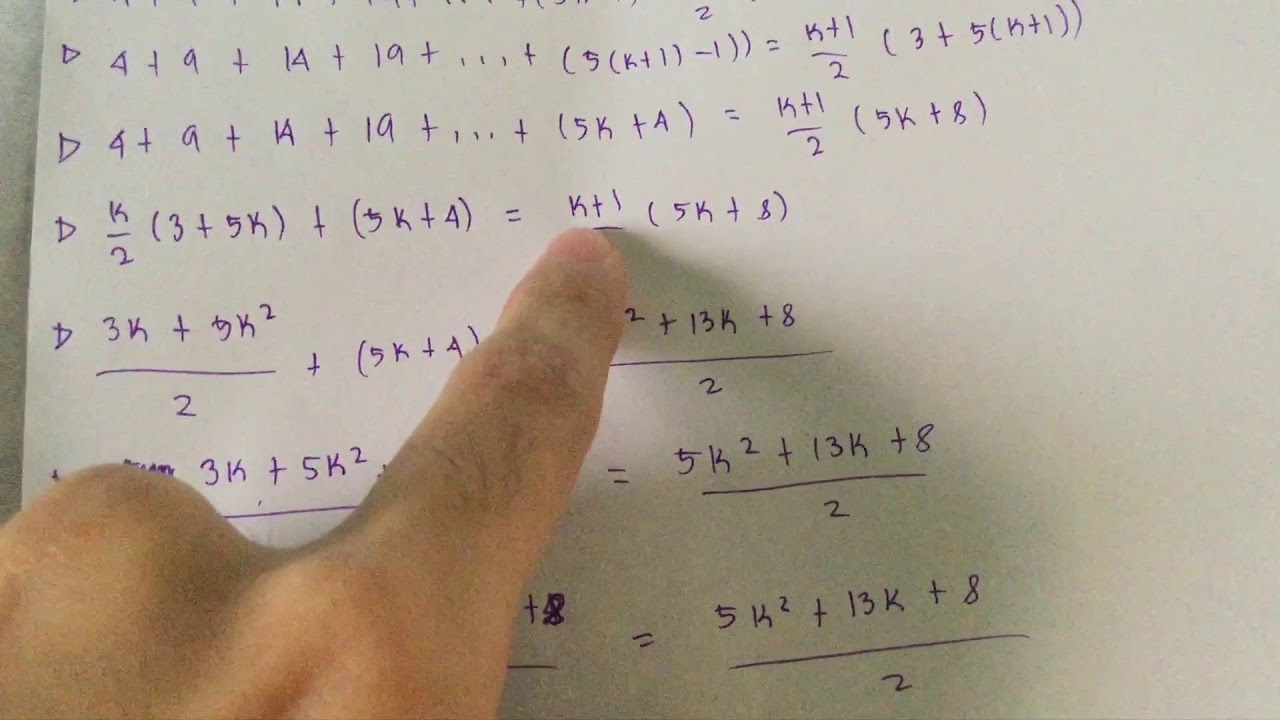 2
▷ 4 + 9 + 14 + 19 + ... + (5(k+1) -1)) = k+1/2 (3 + 5(k+1))
▷ 4 + 9 + 14 + 19 + ... + (5k + 4) = k+1/2 (5k + 8)
▷ k/2 (3 + 5k) + (5k + 4) = k+1 (5k + 8)
▷ 3k + 5k²/2 + (5k + 4) ² + 13k + 8/2
3k + 5k² = 5k² + 13k + 8/2
+8 = 5k² + 13k + 8/2